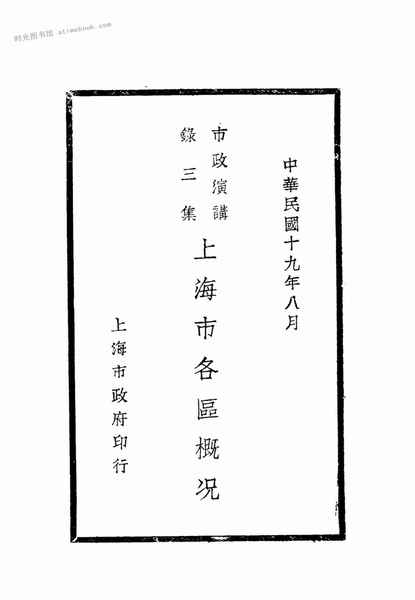 时光图书馆 atimebook.com
中華民國十九年八月
市政演講
錄三集
上海市各區概况
上海市政府印行